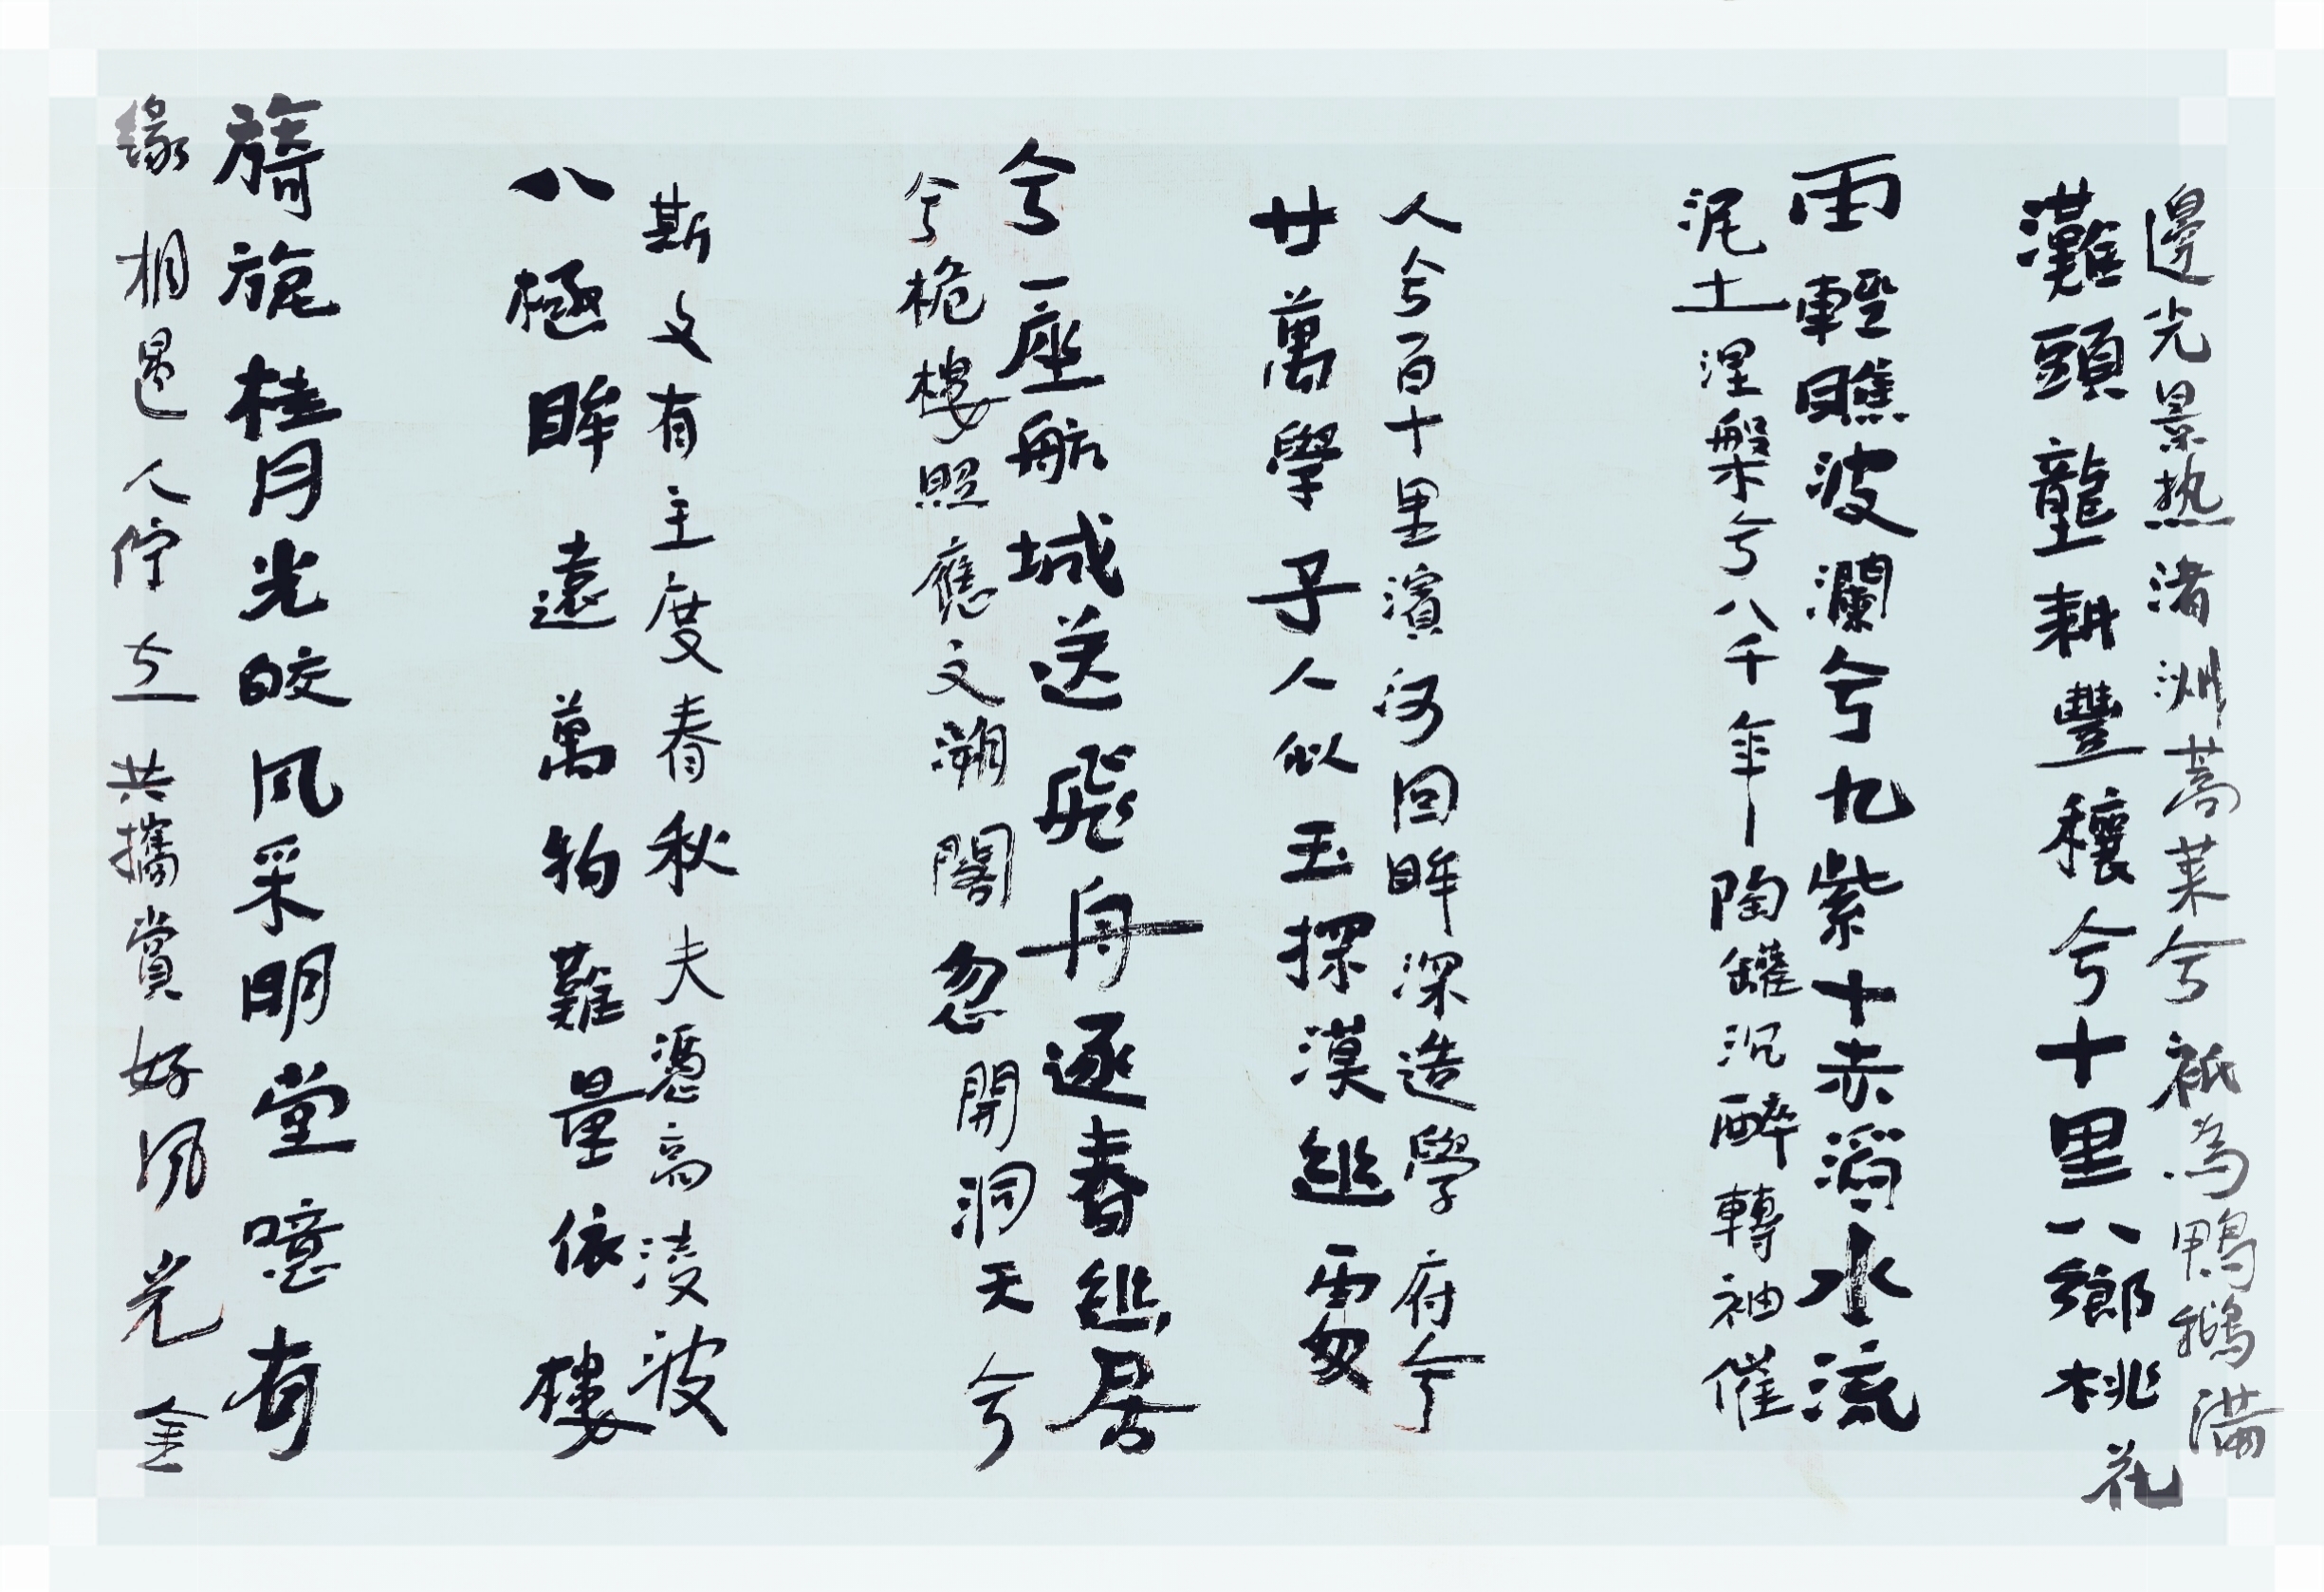 邊光景热渚洲蒿莱兮祇為鴨鵝满
灘頭壟耕豐穰兮十里八鄉桃花
雨輕瞧波瀾兮九紫十赤滔水流
泥土涅槃兮八千年陶罐沉醉轉袖催
人兮百十里濱河回眸深造學府兮
廿萬學子人似玉探漠巡雲
兮一座航城送飛舟逐春巡居
兮桅樓照應文溯閣忽開洞天兮
斯文有主度春秋夫憑高凌波
八極眸遠萬物難量依樓
旖旎桂月光皎风采明堂噫有
緣相遇人佇立共攜賞好风光金